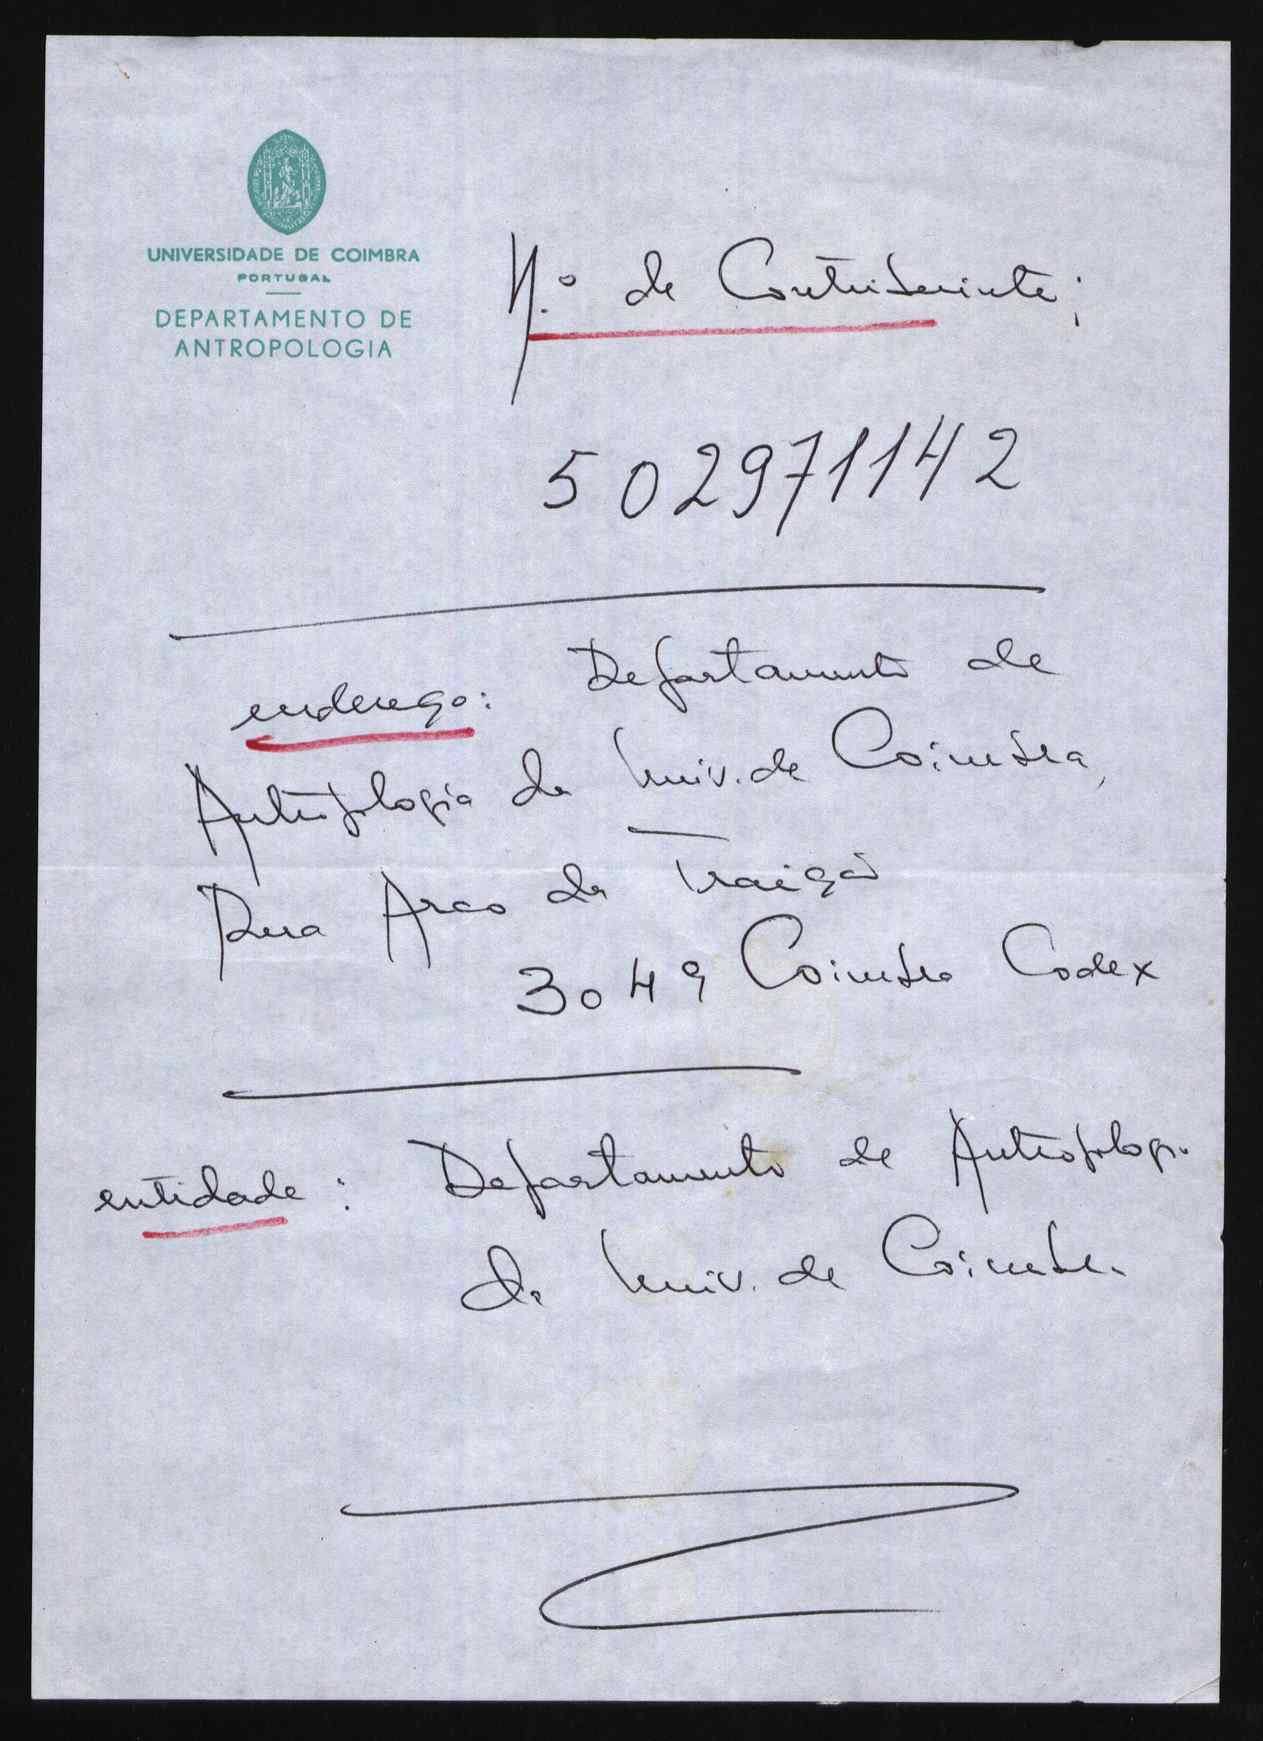 UNIVERSIDADE DE COIMBRA
PORTUGAL
DEPARTAMENTO DE
ANTROPOLOGIA
N.º de Contribuinte;
502971142
endereço: Departamento de
Antropologia da Univ. de Coimbra,
Rua Arco da Traição
3049 Coimbra Codex
entidade: Departamento de Antropolog.
da Univ. de Coimbra